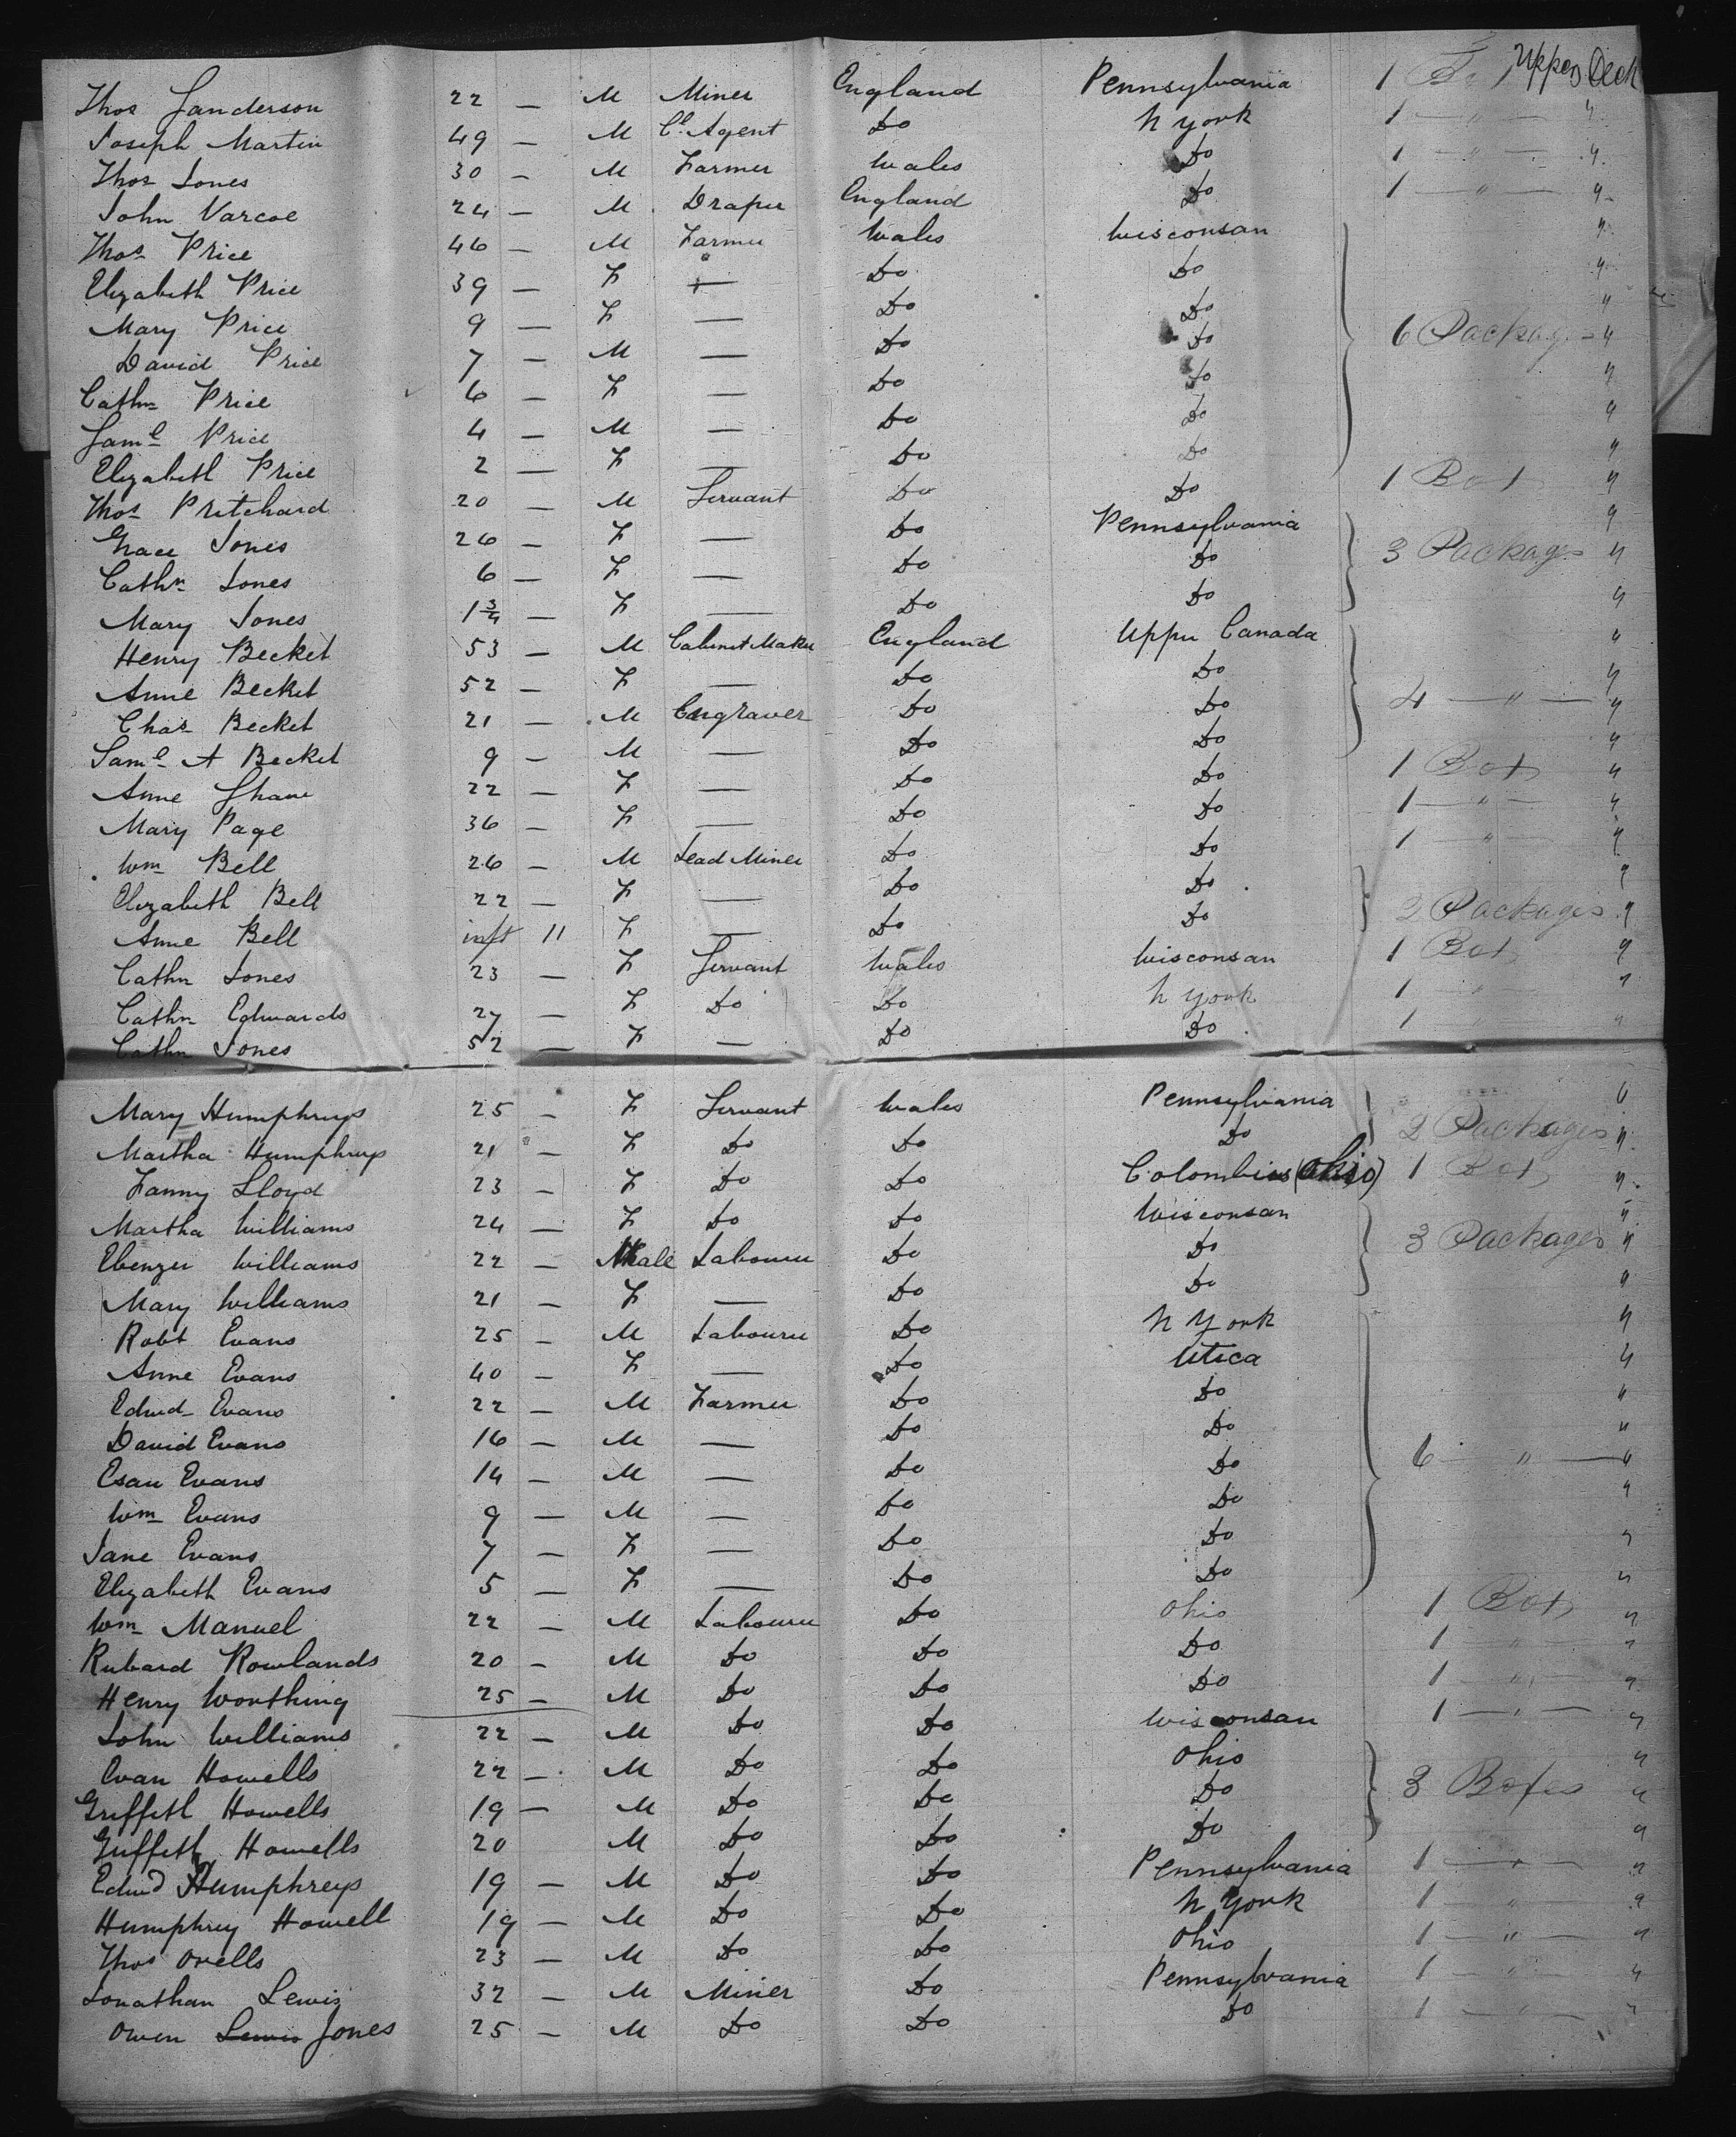 Thos Sanderson 22 — M Miner England Pennsylvania 1 Box Upper Deck
Joseph Martin 49 — M Cl. Agent Do N York 1 — " — "
Thos Jones 30 — M Farmer Wales Do 1 — " — "
John Varcoe 24 — M Draper England Do 1 — " — "
Thos Price 46 — M Farmer Wales Wisconsan "
Elizabeth Price 39 — F — Do Do "
Mary Price 9 — F — Do Do "
David Price 7 — M — Do Do 6 Packages "
Cathn Price 6 — F — Do Do "
Saml Price 4 — M — Do Do "
Elizabeth Price 2 — F — Do Do "
Thos Pritchard 20 — M Servant Do Do 1 Box "
Grace Jones 26 — F — Do Pennsylvania "
Cathn Jones 6 — F — Do Do 3 Packages "
Mary Jones 1¾ — F — Do Do "
Henry Becket 53 — M Cabinet Maker England Upper Canada "
Anne Becket 52 — F — Do Do "
Chas Becket 21 — M Engraver Do Do 4 — " — "
Saml A Becket 9 — M — Do Do "
Anne Shaw 22 — F — Do Do 1 Box "
Mary Page 36 — F — Do Do 1 — " — "
Wm Bell 26 — M Lead Miner Do Do 1 — " — "
Elizabeth Bell 22 — F — Do Do "
Anne Bell inft 11 F — Do Do 2 Packages "
Cathn Jones 23 — F Servant Wales Wisconsan 1 Box "
Cathn Edwards 27 — F Do Do N York 1 — " — "
Cathn Jones 52 — F — Do Do 1 — " — "
Mary Humphreys 25 — F Servant Wales Pennsylvania "
Martha Humphreys 21 — F Do Do Do 2 Packages "
Fanny Lloyd 23 — F Do Do Colombius (Ohio) 1 Box "
Martha Williams 24 — F Do Do Wisconsan "
Ebenzer Williams 22 — Male Labourer Do Do 3 Packages "
Mary Williams 21 — F — Do Do "
Robt Evans 25 — M Labourer Do N York "
Anne Evans 40 — F — Do Utica "
Edwd Evans 22 — M Farmer Do Do "
David Evans 16 — M — Do Do "
Esau Evans 14 — M — Do Do 6 — " — "
Wm Evans 9 — M — Do Do "
Jane Evans 7 — F — Do Do "
Elizabeth Evans 5 — F — Do Do "
Wm Manuel 22 — M Labourer Do Ohio 1 Box "
Richard Rowlands 20 — M Do Do Do 1 " "
Henry Worthing 25 — M Do Do Do 1 — " — "
John Williams 22 — M Do Do Wisconsan 1 — " — "
Evan Howells 22 — M Do Do Ohio "
Griffith Howells 19 — M Do Do Do 3 Boxes "
Griffith Howells 20 M Do Do Do "
Edwd Humphreys 19 — M Do Do Pennsylvania 1 — " — "
Humphrey Howell 19 — M Do Do N York 1 — " — "
Thos Ovells 23 — M Do Do Ohio 1 — " — "
Jonathan Lewis 32 — M Miner Do Pennsylvania 1 — " — "
Owen Lewis Jones 25 — M Do Do Do 1 — " — "